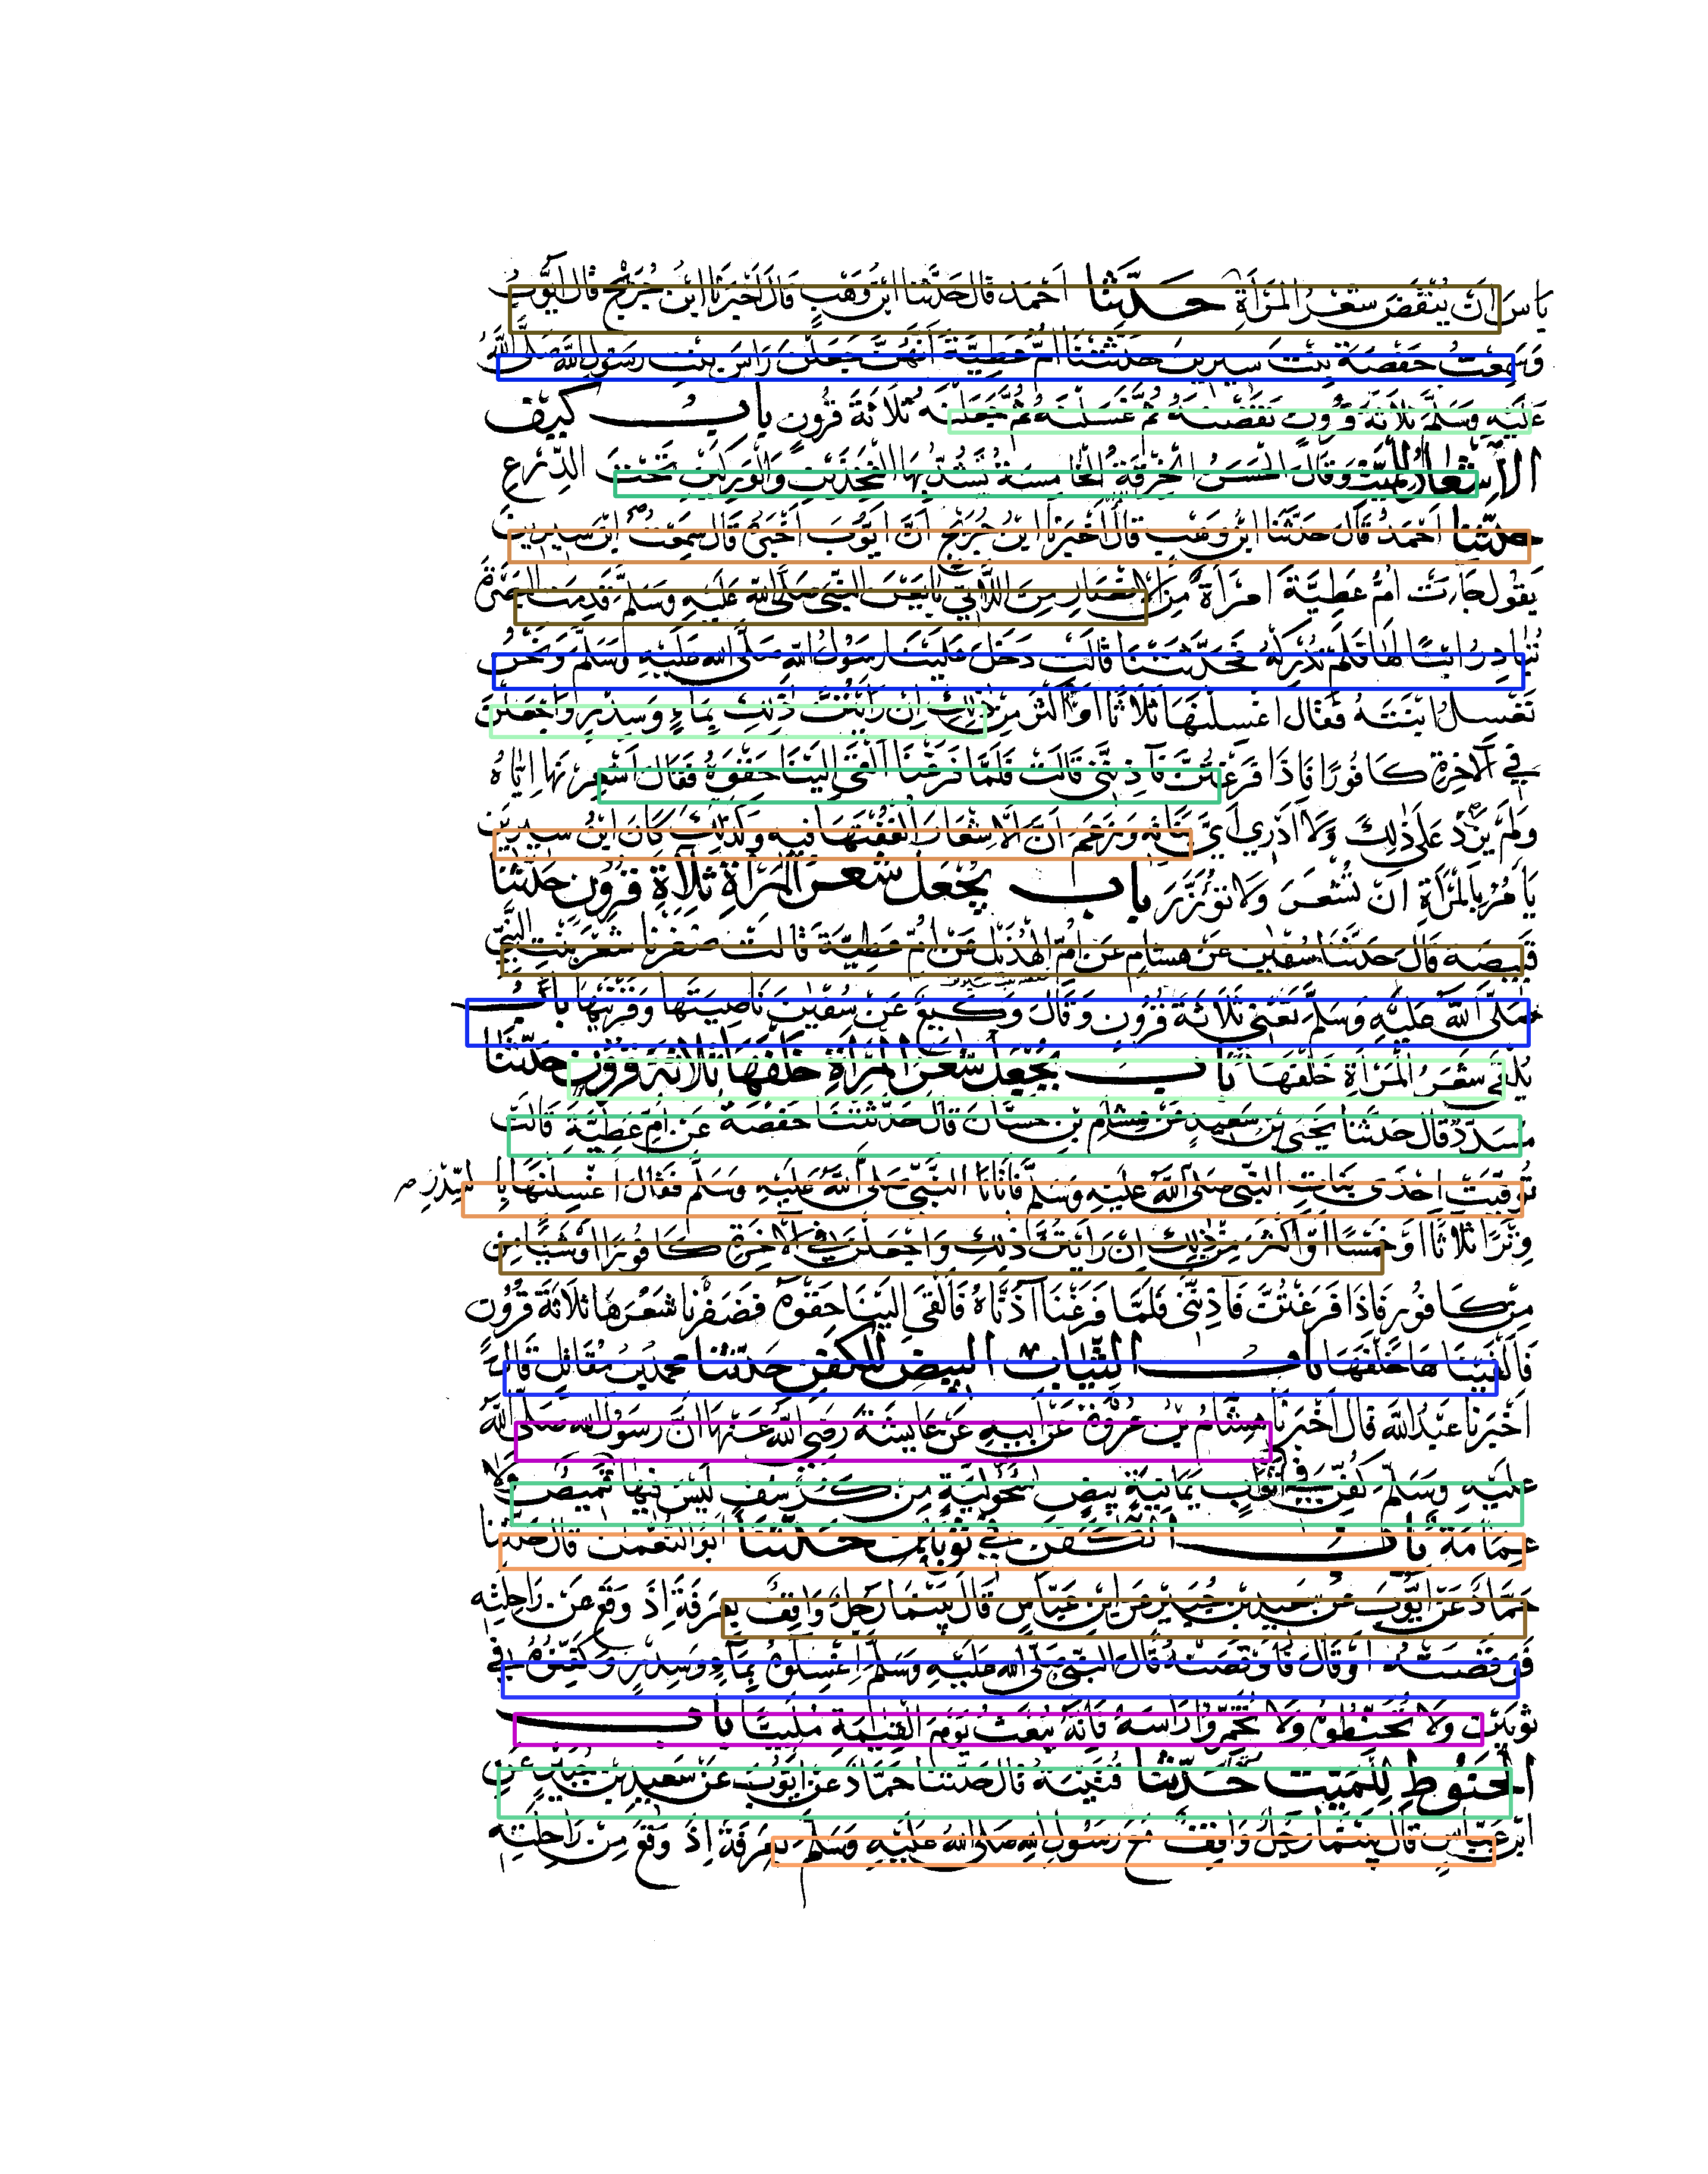 باس ان ينقض شعر المرأة حدثنا احمد قال حدثنا ابن وهب قال اخبرنا ابن جريج قال ايوب
وسمعت حفصة بنت سيرين حدثتنا ام عطية انهن جعلن راس بنت رسول الله صلى الله
عليه وسلم ثلاثة قرون نقضنه ثم غسلنه ثم جعلنه ثلاثة قرون باب كيف
الاشعار للميت وقال الحسن الخرقة الخامسة تشد بها الفخذين والوركين تحت الدرع
حدثنا احمد قال حدثنا ابن وهب قال اخبرنا ابن جريج ان ايوب اخبره قال سمعت ابن سيرين
يقول جاءت ام عطية امرأة من الانصار من اللاتي بايعن النبي صلى الله عليه وسلم قدمت البصرة
تبادر ابنا لها فلم تدركه فحدثتنا قالت دخل علينا رسول الله صلى الله عليه وسلم ونحن
نغسل ابنته فقال اغسلنها ثلاثا او اكثر من ذلك ان رأيتن ذلك بماء وسدر واجعلن
في الآخرة كافورا فاذا فرغتن فآذنني قالت فلما فرغنا القى الينا حقوه فقال اشعرنها اياه
ولم يزد على ذلك ولا ادري اي بناته وزعم ان الاشعار الففنها فيه وكذلك كان ابن سيرين
يامر بالمرأة ان تشعر ولا تؤزر باب يجعل شعر المرأة ثلاثة قرون حدثنا
قبيصة قال حدثنا سفين عن هشام عن ام الهذيل عن ام عطية قالت ضفرنا شعر بنت النبي
صلى الله عليه وسلم تعني ثلاثة قرون وقال وكيع عن سفين ناصيتها وقرنيها باب
يلقى شعر المرأة خلفها باب يجعل شعر المرأة خلفها ثلاثة قرون حدثنا
مسدد قال حدثنا يحيى بن سعيد عن هشام بن حسان قال حدثتنا حفصة عن ام عطية قالت
توفيت احدى بنات النبي صلى الله عليه وسلم فاتانا النبي صلى الله عليه وسلم فقال اغسلنها بالسدر
وترا ثلاثا او خمسا او اكثر من ذلك ان رايتن ذلك واجعلن في الآخرة كافورا او شيئا من
من كافور فاذا فرغتن فآذنني فلما فرغنا آذناه فالقى الينا حقوه فضفرنا شعرها ثلاثة قرون
فالقيناها خلفها باب الثياب البيض للكفن حدثنا محمد بن مقاتل قال
اخبرنا عبد الله قال اخبرنا هشام بن عروة عن ابيه عن عايشة رضي الله عنها ان رسول الله صلى الله
عليه وسلم كفن في اثواب يمانية بيض سحولية من كرسف ليس فيها قميص ولا
عمامة باب الكفن في ثوبين حدثنا ابو النعمان قال حدثنا
حماد عن ايوب عن سعيد بن جبير عن ابن عباس قال بينما رجل واقف بعرفة اذ وقع عن راحلته
فوقصته او قال فاوقصته قال النبي صلى الله عليه وسلم اغسلوه بماء وسدر وكفنوه في
ثوبين ولا تحنطوه ولا تخمروا راسه فانه يبعث يوم القيامة ملبيا باب
الحنوط للميت حدثنا قتيبة قال حدثنا حماد عن ايوب عن سعيد بن جبير عن
ابن عباس قال بينما رجل واقف مع رسول الله صلى الله عليه وسلم بعرفة اذ وقع من راحلته